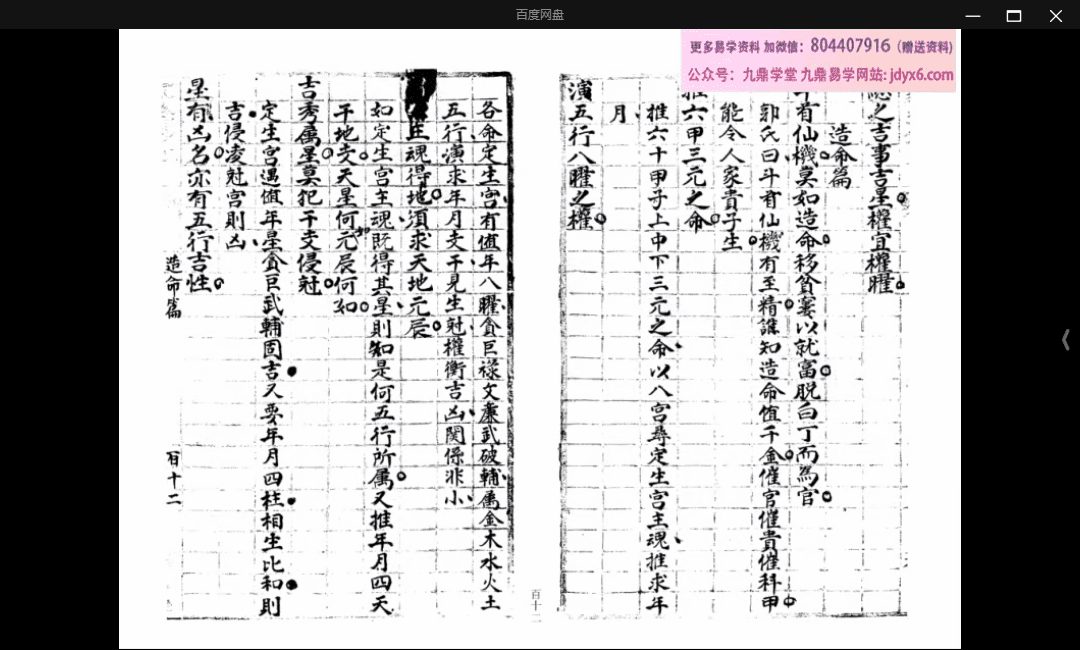 百度网盘
更多易学资料 加微信：804407916（赠送资料）
公众号：九鼎学堂 九鼎易学网站：jdyx6.com
之吉事吉星權宜權曜
造命篇
有仙機莫如造命移貧窶以就富脱白丁而為官
郭氏曰斗有仙機有至精誰知造命值千金催官催貴催科甲
能令人家貴子生
推六甲三元之命
推六十甲子上中下三元之命以八宮尋定生宮主魂推求年
月
演五行八曜之權
百十一
各命定生宮有值年八曜貪巨祿文廉武破輔属金木水火土
五行演求年月支干見生尅權衡吉凶関係非小
主魂得地須求天地元辰
如定生宮主魂既得其星則知是何五行所属又推年月四天
干地支天星何元辰何如
吉秀属星莫犯干支侵尅
定生宮遇值年星貪巨武輔固吉又要年月四柱相生比和則
吉侵凌尅宮則凶
星有凶名亦有五行吉性
造命篇
百十二